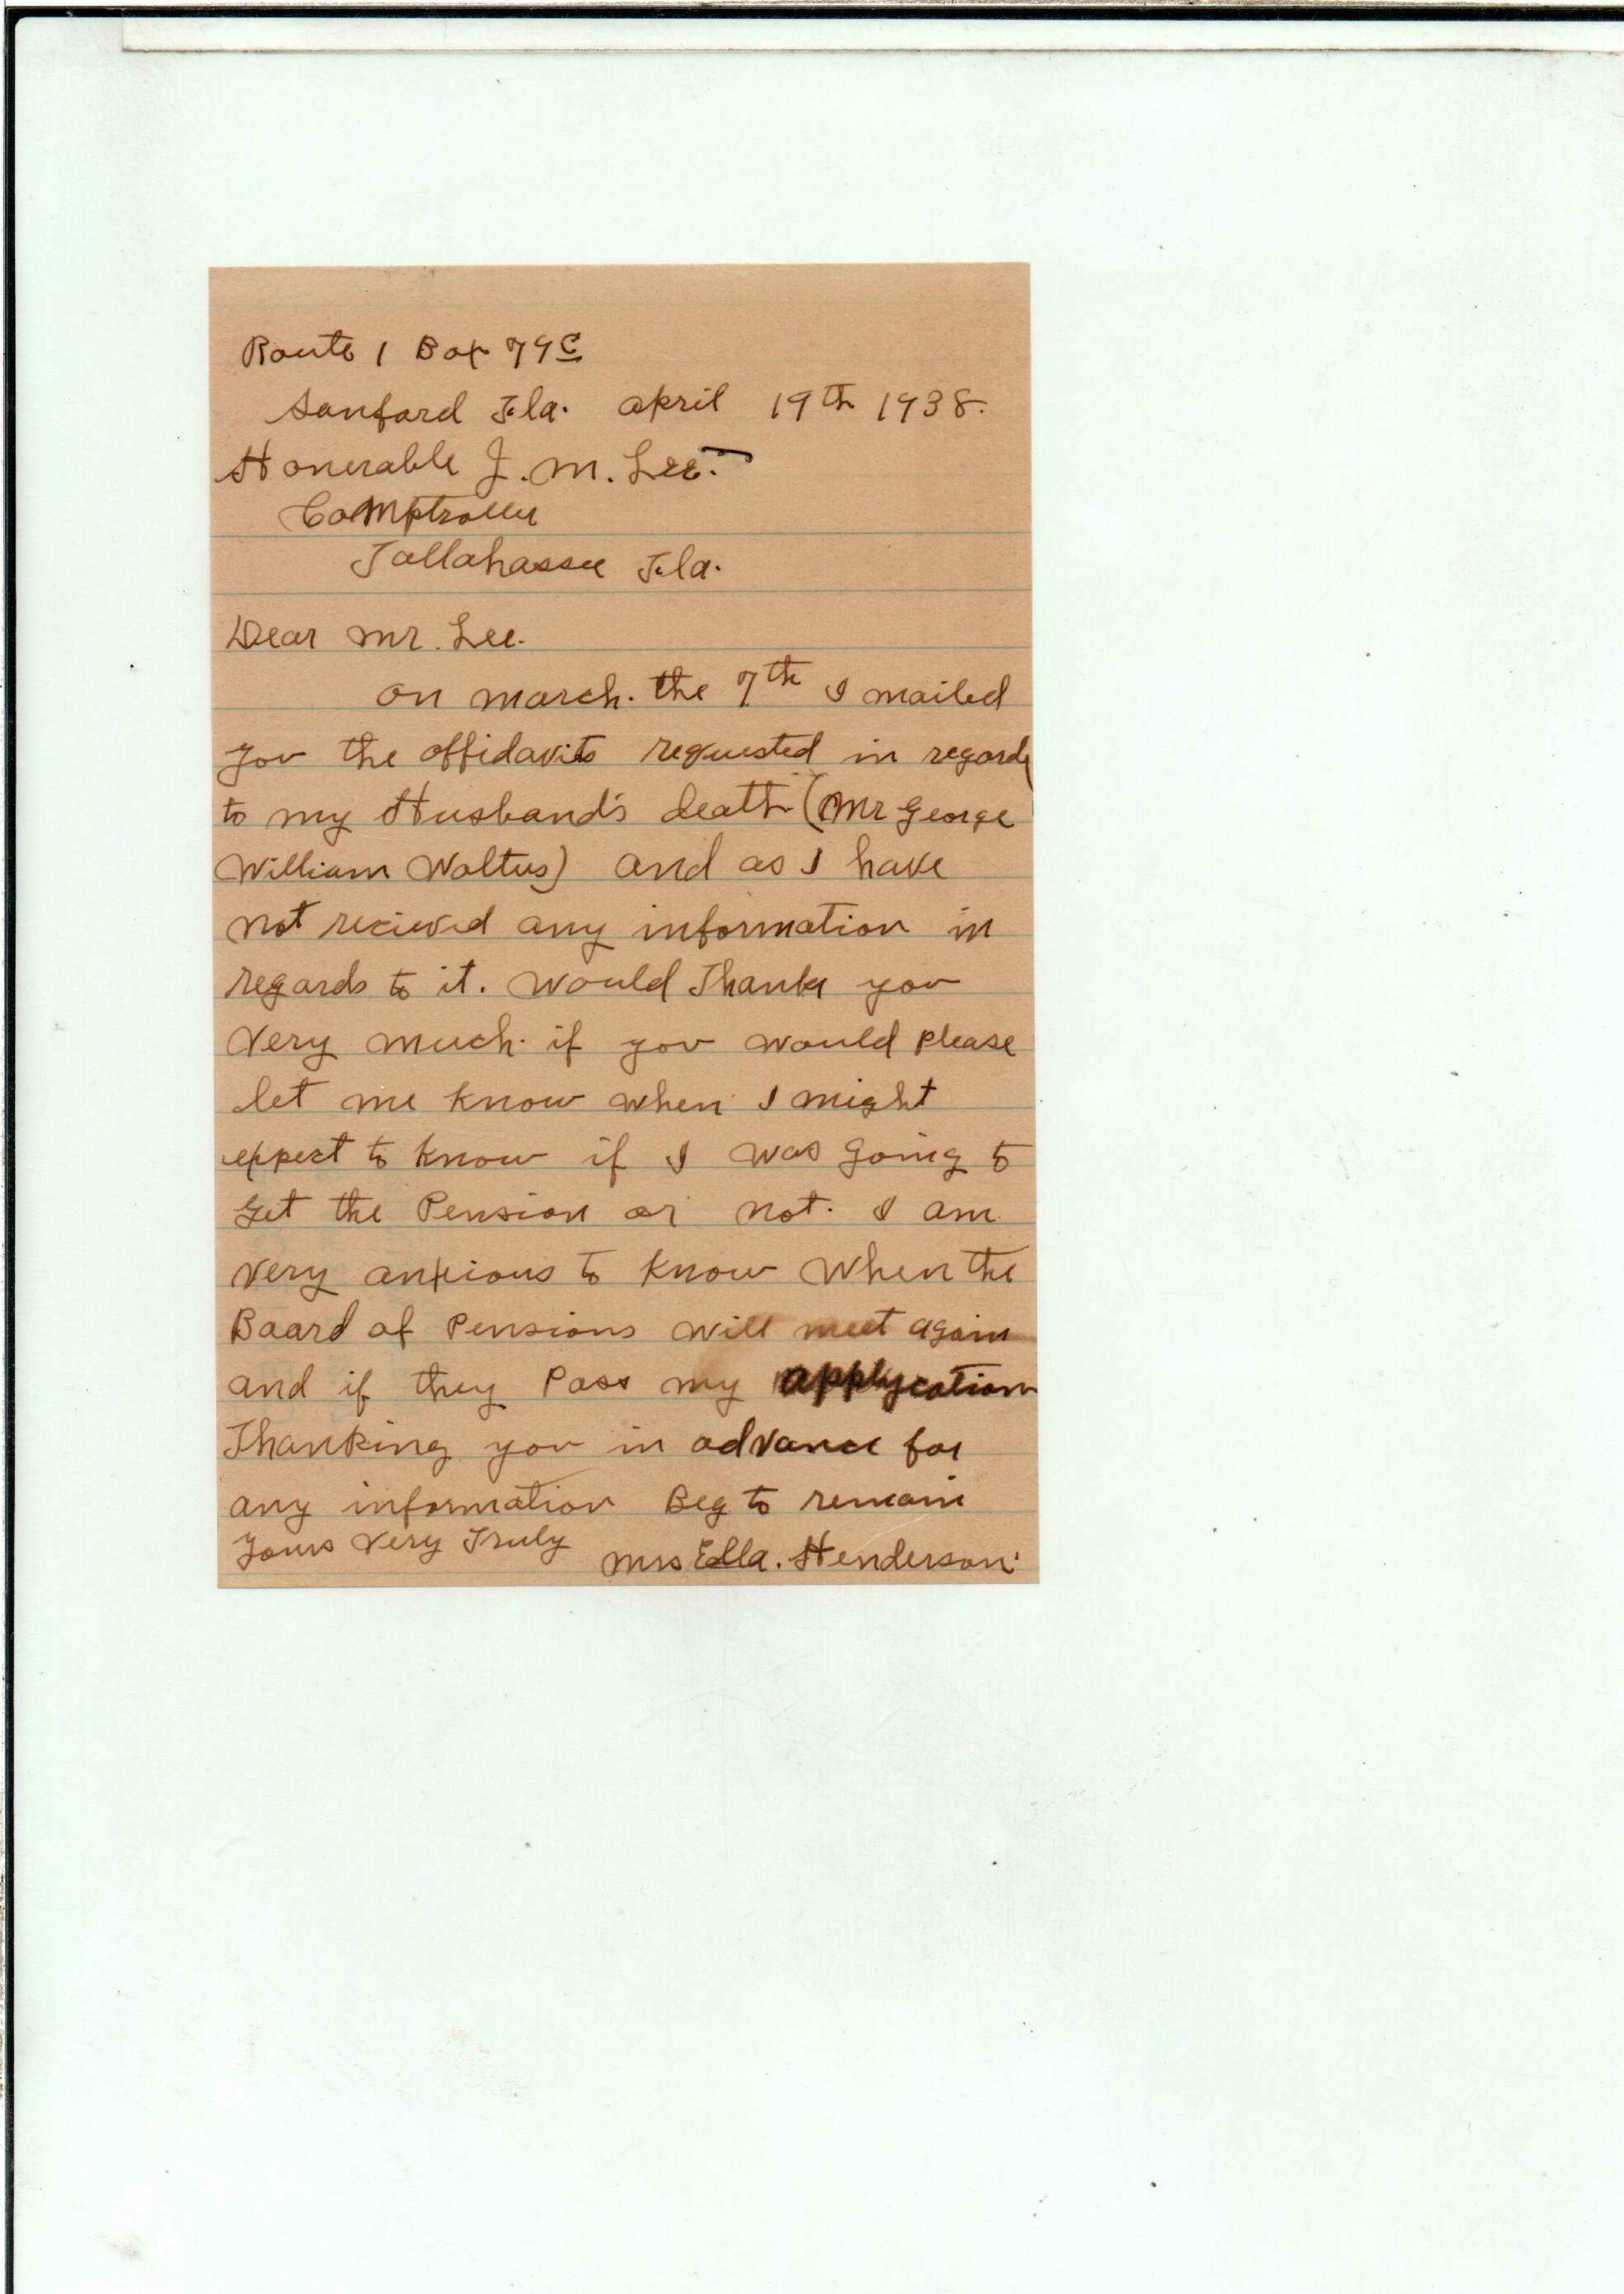 Route 1 Box 79C
Sanford Fla. april 19th 1938.
Honerable J. M. Lee.
Comptroller
Tallahassee Fla.
Dear mr. Lee.
on march. the 7th I mailed
you the affidavits requested in regards
to my Husband's death (Mr George
William Walters) and as I have
not recieved any information in
regards to it. Would Thank you
very much. if you would please
let me know when I might
expect to know if I was going to
get the Pension or not. I am
very anxious to know when the
Board of Pensions will meet again
and if they Pass my applycation
Thanking you in advance for
any information Beg to remain
Yours Very Truly Mrs Ella. Henderson.